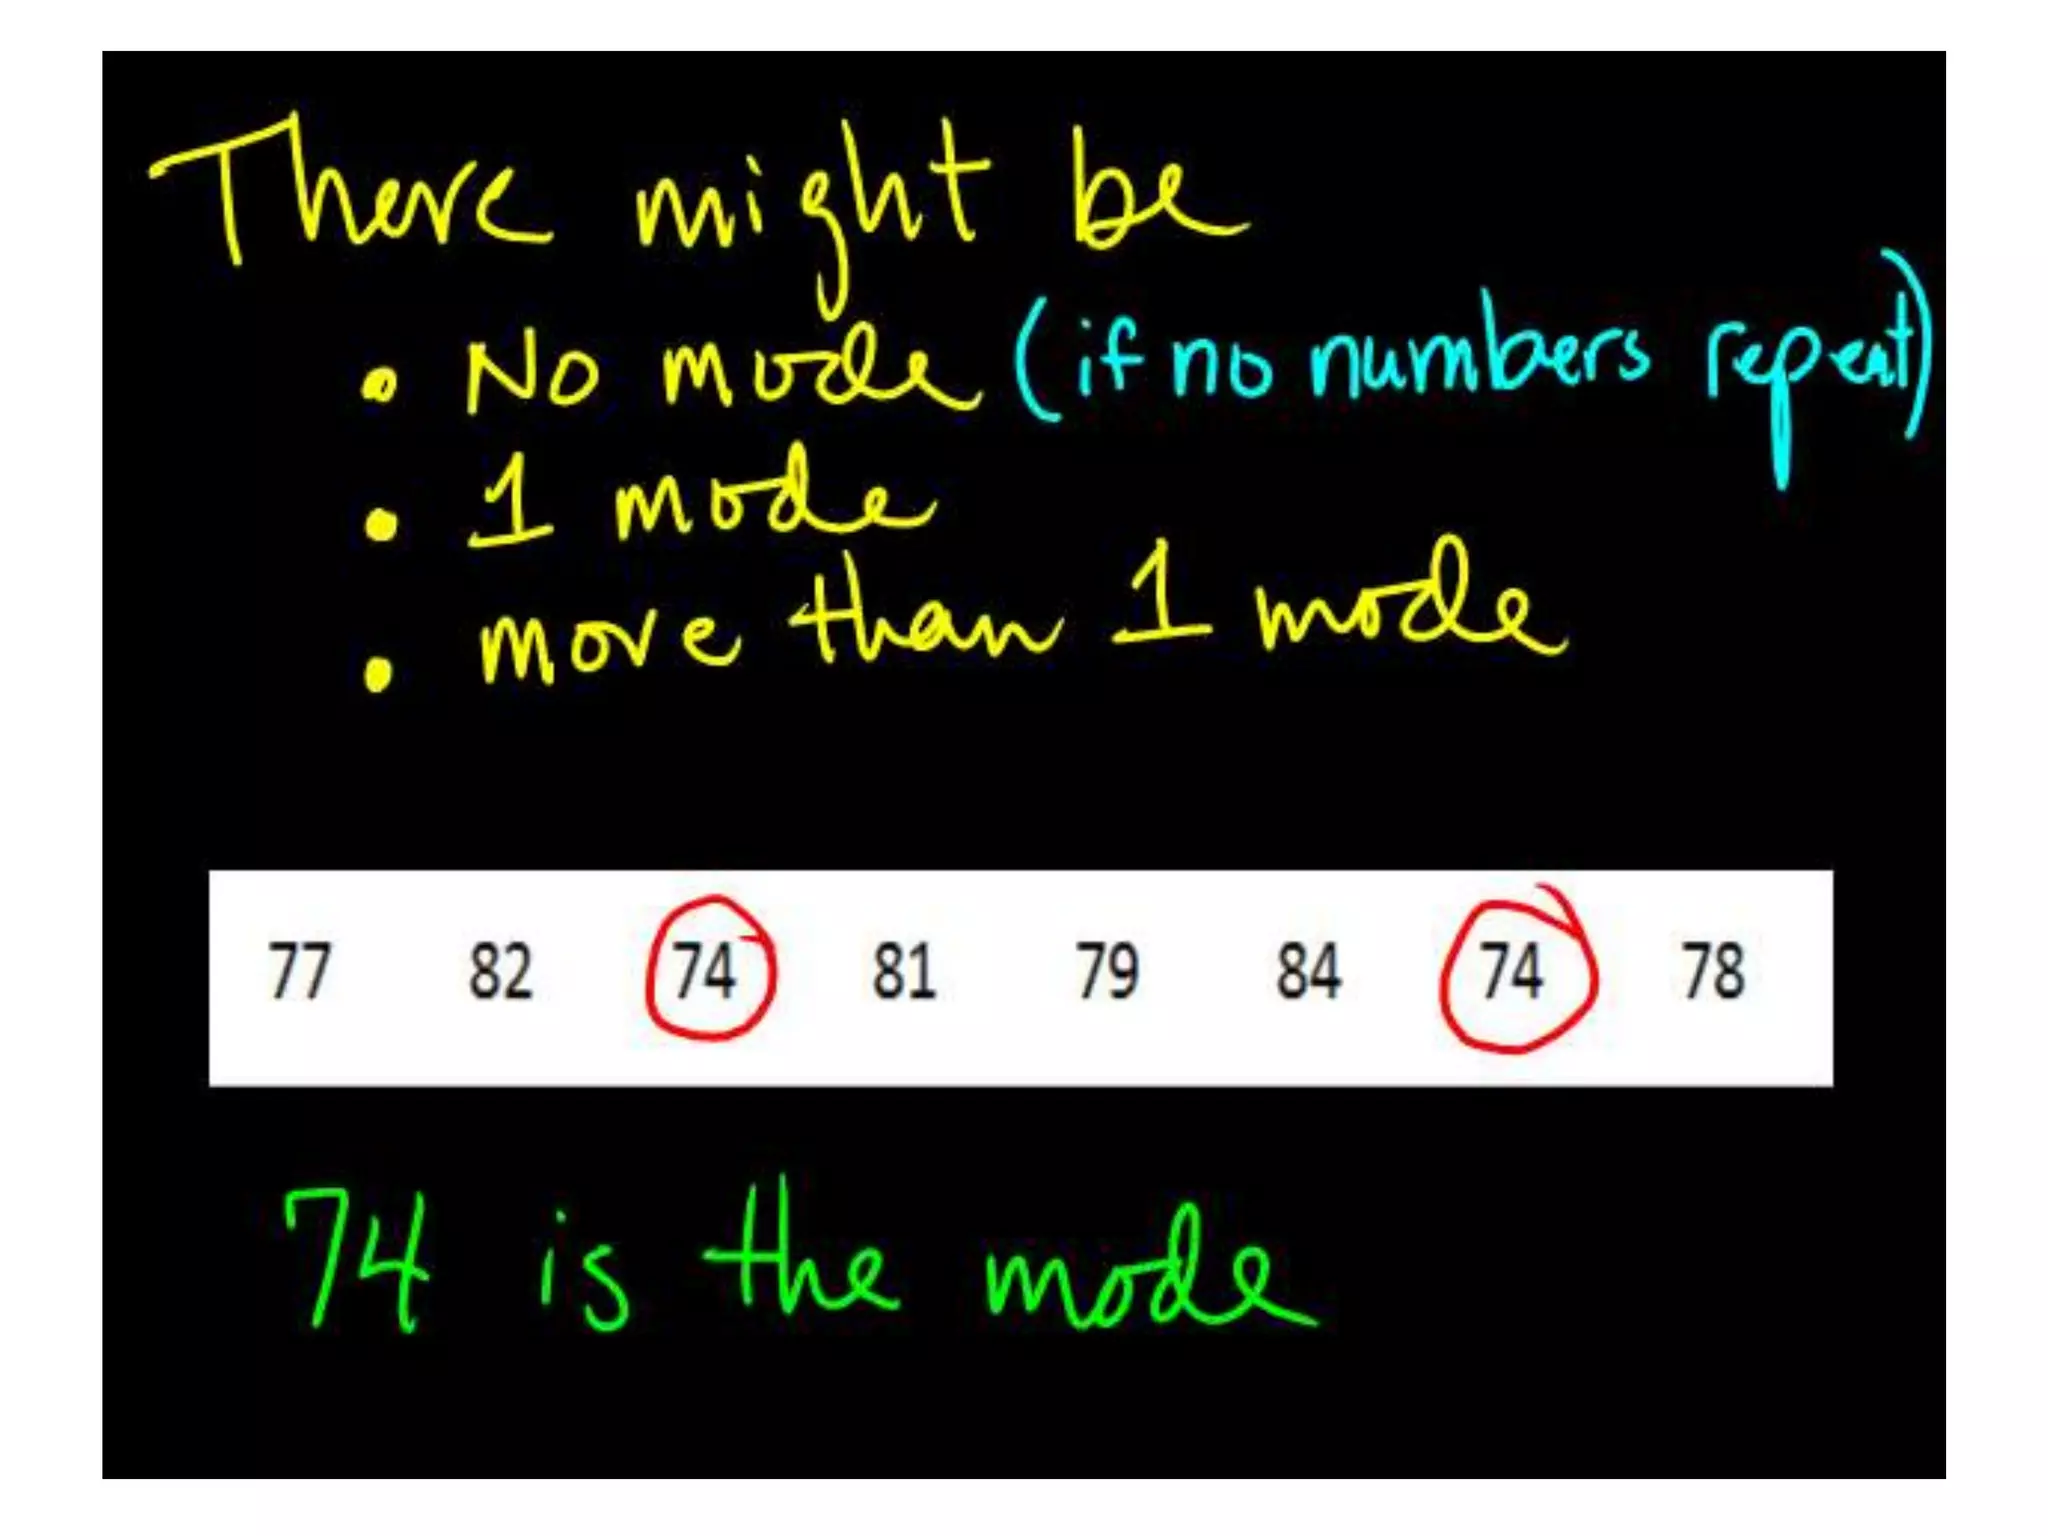 There might be
• No mode (if no numbers repeat)
• 1 mode
• more than 1 mode
77 82 74 81 79 84 74 78
74 is the mode